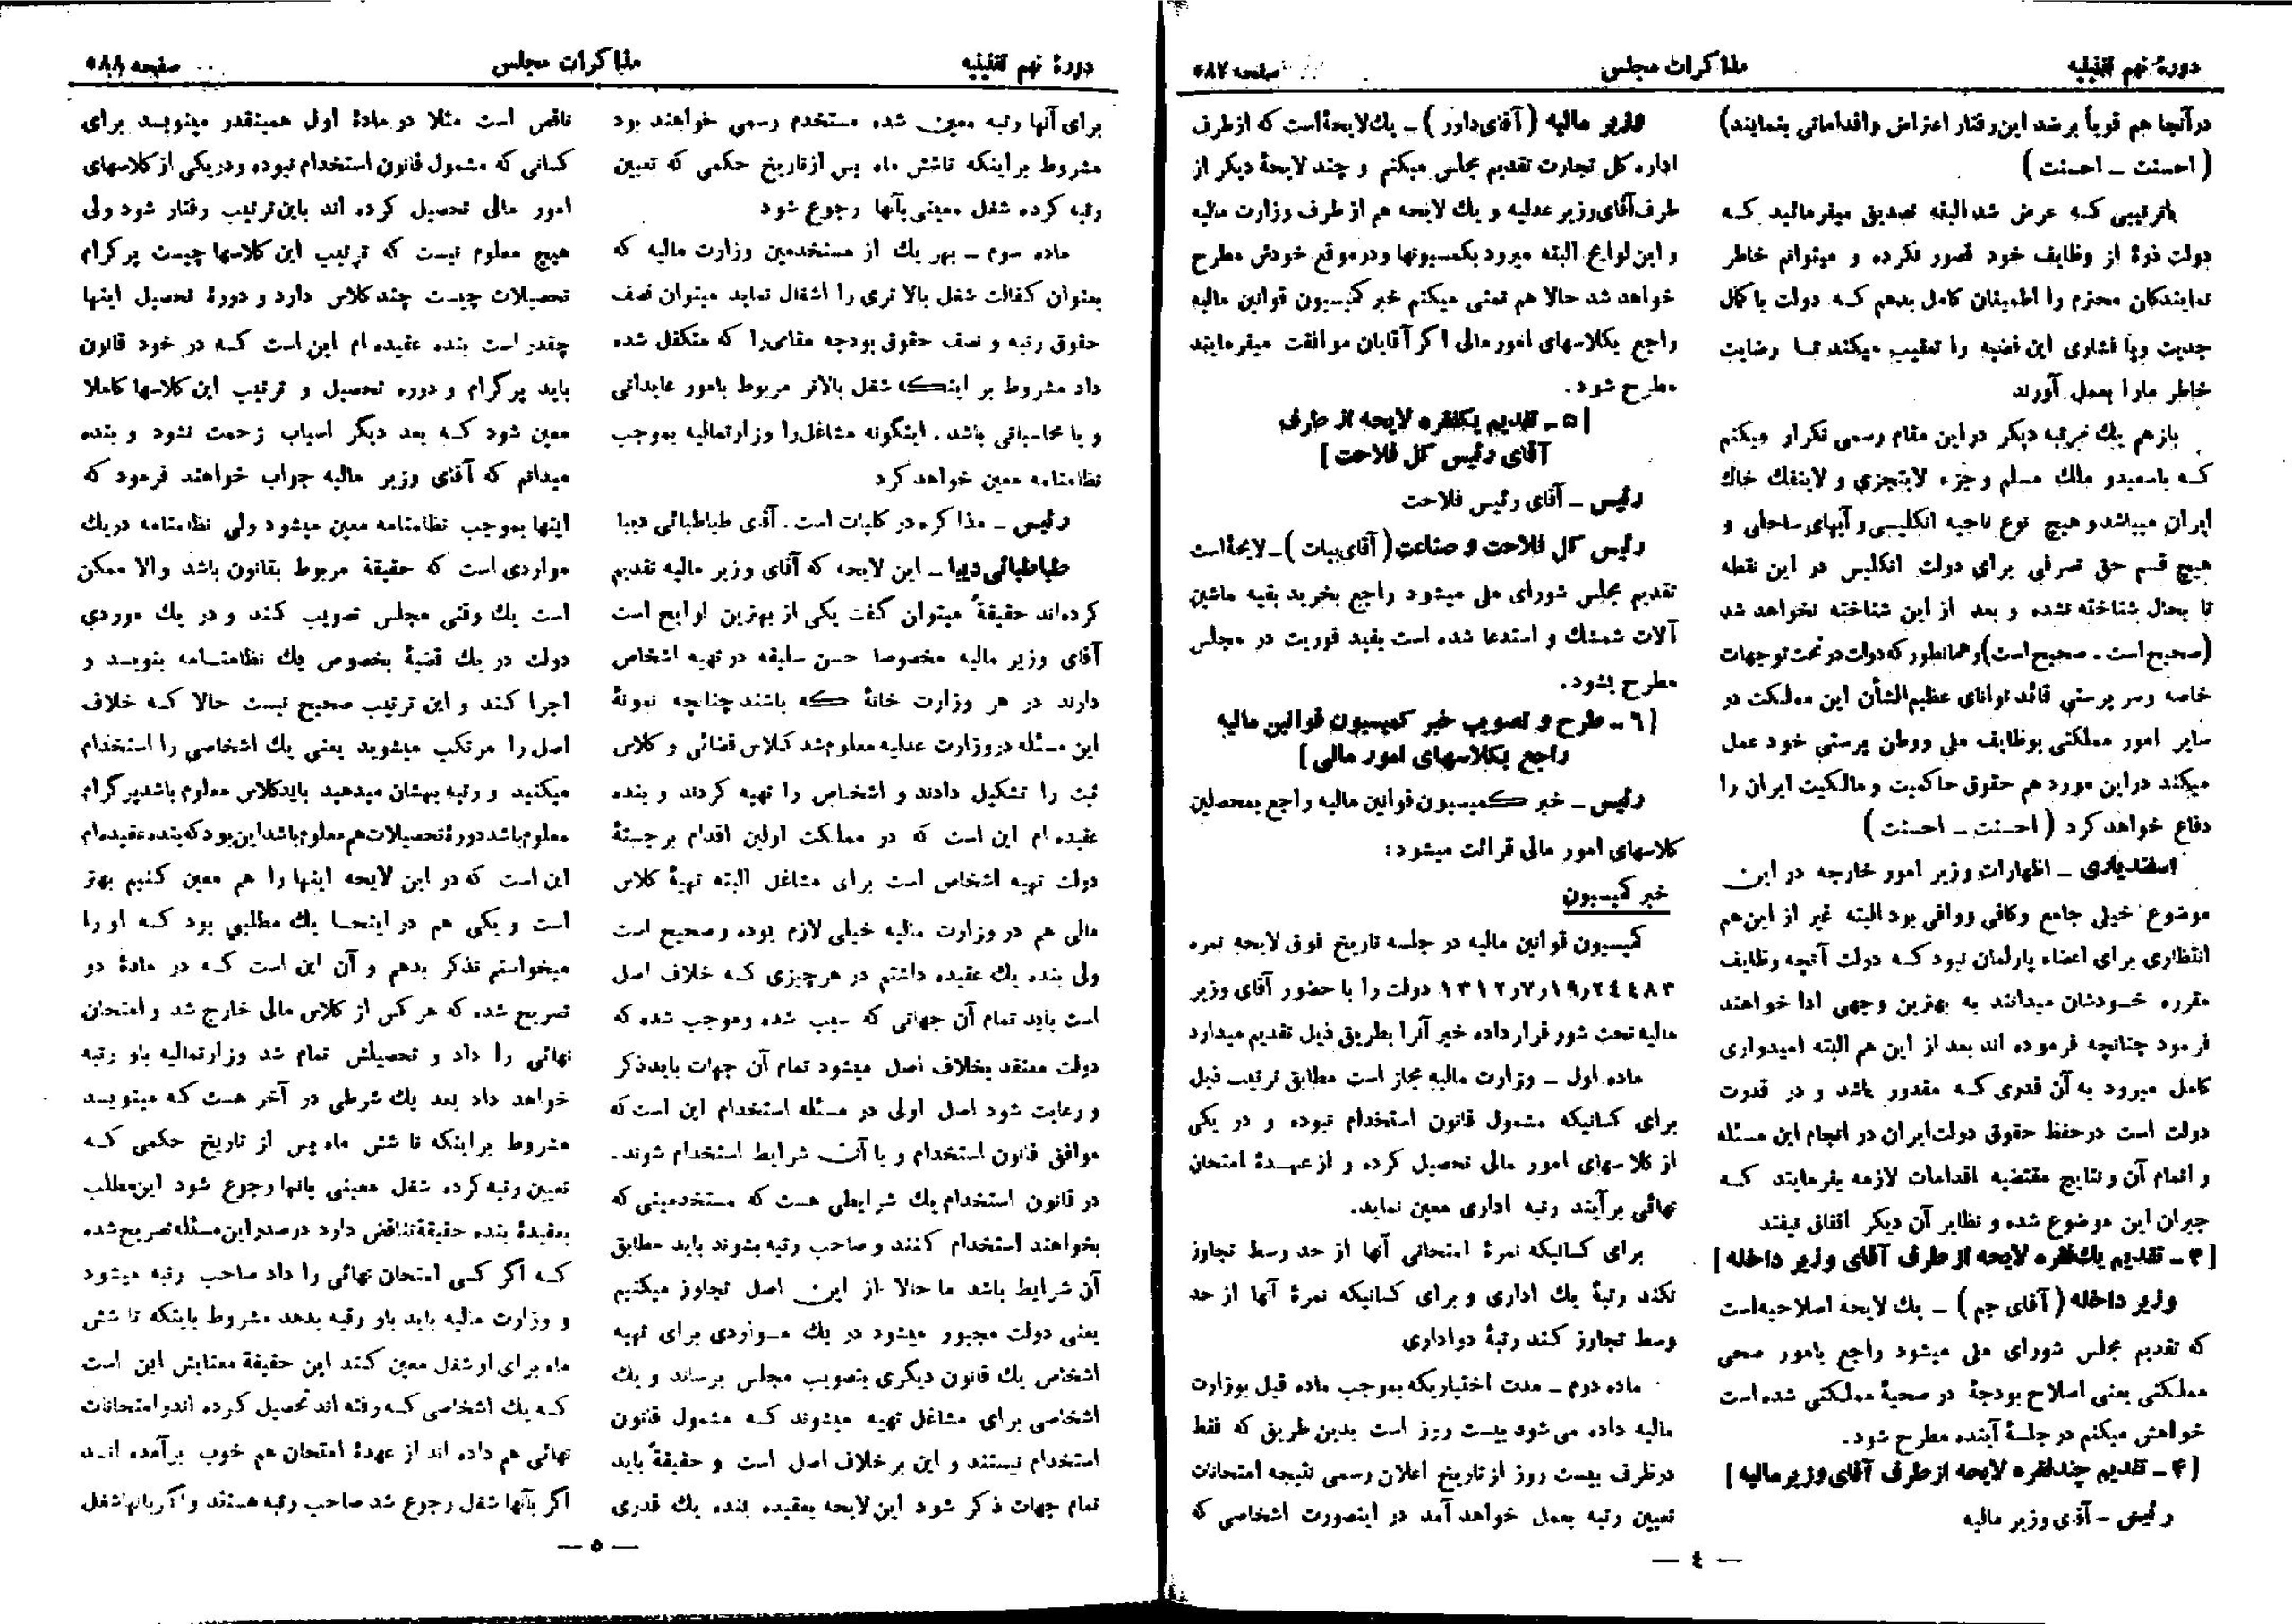 دورهٔ نهم تقنینیه
مذاکرات مجلس
صفحه ۵۸۷
درآنجا هم قویاً برضد این‌رفتار اعتراض واقداماتی بنمایند)
(احسنت ـ احسنت)
باترتیبی که عرض شد البته تصدیق میفرمائید که
دولت ذرهٔ از وظایف خود قصور نکرده و میتوانم خاطر
نمایندگان محترم را اطمینان کامل بدهم که دولت با کمال
جدیت وپا فشاری این قضیه را تعقیب میکند تا رضایت
خاطر ما را بعمل آورند
بازهم یك مرتبه دیگر در این مقام رسمی تکرار میکنم
که باسعیدو ملك مسلم و جزء لایتجزی و لاینفك خاك
ایران میباشد و هیچ نوع ناحیه انگلیسی و آبهای ساحلی و
هیچ قسم حق تصرفی برای دولت انگلیس در این نقطه
تا بحال شناخته نشده و بعد از این شناخته نخواهد شد
(صحیح است ـ صحیح است) و همانطور که دولت در تحت توجهات
خاصه وسر پرستی قائد توانای عظیم‌الشأن این مملکت در
سایر امور مملکتی بوظایف ملی ووطن پرستی خود عمل
میکند دراین مورد هم حقوق حاکمیت و مالکیت ایران را
دفاع خواهد کرد (احسنت ـ احسنت)
اسفندیاری ـ اظهارات وزیر امور خارجه در این
موضوع خیلی جامع وکافی ووافی بود البته غیر از این هم
انتظاری برای اعضاء پارلمان نبود که دولت آنچه وظایف
مقرره خودشان میدانند به بهترین وجهی ادا خواهند
فرمود چنانچه فرموده اند بعد از این هم البته امیدواری
کامل میرود به آن قدری که مقدور باشد و در قدرت
دولت است درحفظ حقوق دولت‌ایران در انجام این مسئله
و اتمام آن و نتایج مقتضیه اقدامات لازمه بفرمایند که
جبران این موضوع شده و نظایر آن دیگر اتفاق نیفتد
[۳ ـ تقدیم یك فقره لایحه از طرف آقای وزیر داخله]
وزیر داخله (آقای جم) ـ یك لایحه اصلاحیه‌است
که تقدیم مجلس شورای ملی میشود راجع بامور صحی
مملکتی یعنی اصلاح بودجهٔ در صحیهٔ مملکتی شده است
خواهش میکنم در جلسهٔ آینده مطرح شود.
[۴ ـ تقدیم چند فقره لایحه از طرف آقای وزیر مالیه]
رئیس ـ آقای وزیر مالیه
وزیر مالیه (آقای‌داور) ـ یك‌لایحهٔ‌است که از طرف
اداره کل تجارت تقدیم مجلس میکنم و چند لایحهٔ دیگر از
طرف آقای وزیر عدلیه و یك لایحه هم از طرف وزارت مالیه
و این لوایح البته میرود بکمسیونها ودر موقع خودش مطرح
خواهد شد حالا هم تمنی میکنم خبر کمیسیون قوانین مالیه
راجع بکلاسهای امورمالی اگر آقایان موافقت میفرمایند
مطرح شود.
[۵ ـ تقدیم یکفقره لایحه از طرف
آقای رئیس کل فلاحت]
رئیس ـ آقای رئیس فلاحت
رئیس کل فلاحت و صناعت (آقای‌بیات) ـ لایحهٔ‌است
تقدیم مجلس شورای ملی میشود راجع بخرید بقیه ماشین
آلات شمشك و استدعا شده است بقید فوریت در مجلس
مطرح بشود.
[۶ ـ طرح و تصویب خبر کمیسیون قوانین مالیه
راجع بکلاسهای امور مالی]
رئیس ـ خبر کمیسیون قوانین مالیه راجع بمحصلین
کلاسهای امور مالی قرائت میشود:
خبر کمیسیون
کمیسیون قوانین مالیه در جلسه تاریخ فوق لایحه نمره
۲۴۴۸۳ر۱۹ر۷ر۱۳۱۲ دولت را با حضور آقای وزیر
مالیه تحت شور قرار داده خبر آنرا بطریق ذیل تقدیم میدارد
ماده اول ـ وزارت مالیه مجاز است مطابق ترتیب ذیل
برای کسانیکه مشمول قانون استخدام نبوده و در یکی
از کلاسهای امور مالی تحصیل کرده و از عهدهٔ امتحان
نهائی برآیند رتبه اداری معین نماید.
برای کسانیکه نمرهٔ امتحانی آنها از حد وسط تجاوز
نکند رتبهٔ یك اداری و برای کسانیکه نمرهٔ آنها از حد
وسط تجاوز کند رتبهٔ دو اداری
ماده دوم ـ مدت اختیاریکه بموجب ماده قبل بوزارت
مالیه داده می شود بیست روز است بدین طریق که فقط
درظرف بیست روز از تاریخ اعلان رسمی نتیجه امتحانات
تعیین رتبه بعمل خواهد آمد در اینصورت اشخاصی که
— ٤ —
دورهٔ نهم تقنینیه
مذاکرات مجلس
صفحه ۵۸۸
برای آنها رتبه معین شده مستخدم رسمی خواهند بود
مشروط براینکه تاشش ماه پس ازتاریخ حکمی که تعیین
رتبه کرده شغل معینی بآنها رجوع شود
ماده سوم ـ بهر یك از مستخدمین وزارت مالیه که
بعنوان کفالت شغل بالا تری را اشغال نماید میتوان نصف
حقوق رتبه و نصف حقوق بودجه مقامی‌را که متکفل شده
داد مشروط بر اینکه شغل بالاتر مربوط بامور عایداتی
و یا محاسباتی باشد. اینگونه مشاغل را وزارتمالیه بموجب
نظامنامه معین خواهد کرد
رئیس ـ مذاکره در کلیات است. آقای طباطبائی دیبا
طباطبائی دیبا ـ این لایحه که آقای وزیر مالیه تقدیم
کرده‌اند حقیقةً میتوان گفت یکی از بهترین لوایح است
آقای وزیر مالیه مخصوصا حسن سلیقه در تهیه اشخاص
دارند در هر وزارت خانهٔ که باشند چنانچه نمونهٔ
این مسئله دروزارت عدلیه معلوم‌شد کلاس قضائی و کلاس
ثبت را تشکیل دادند و اشخاص را تهیه کردند و بنده
عقیده ام این است که در مملکت اولین اقدام برجستهٔ
دولت تهیه اشخاص است برای مشاغل البته تهیهٔ کلاس
مالی هم در وزارت مالیه خیلی لازم بوده و صحیح است
ولی بنده یك عقیده داشتم در هرچیزی که خلاف اصل
است باید تمام آن جهاتی که سبب شده وموجب شده که
دولت معتقد بخلاف اصل میشود تمام آن جهات باید ذکر
و رعایت شود اصل اولی در مسئله استخدام این است‌که
موافق قانون استخدام و با آن شرایط استخدام شوند.
در قانون استخدام یك شرایطی هست که مستخدمینی که
بخواهند استخدام کنند و صاحب رتبه بشوند باید مطابق
آن شرایط باشد ما حالا از این اصل تجاوز میکنیم
یعنی دولت مجبور میشود در یك مواردی برای تهیه
اشخاص یك قانون دیگری بتصویب مجلس برساند و یك
اشخاصی برای مشاغل تهیه میشوند که مشمول قانون
استخدام نیستند و این برخلاف اصل است و حقیقةً باید
تمام جهات ذکر شود این لایحه بعقیده بنده یك قدری
ناقص است مثلا در مادهٔ اول همینقدر مینویسد برای
کسانی که مشمول قانون استخدام نبوده ودریکی از کلاسهای
امور مالی تحصیل کرده اند باین ترتیب رفتار شود ولی
هیچ معلوم نیست که ترتیب این کلاسها چیست پرگرام
تحصیلات چیست چند کلاس دارد و دورهٔ تحصیل اینها
چقدر است بنده عقیده ام این است که در خود قانون
باید پرگرام و دوره تحصیل و ترتیب این کلاسها کاملا
معین شود که بعد دیگر اسباب زحمت نشود و بنده
میدانم که آقای وزیر مالیه جواب خواهند فرمود که
اینها بموجب نظامنامه معین میشود ولی نظامنامه دریك
مواردی است که حقیقة مربوط بقانون باشد والا ممکن
است یك وقتی مجلس تصویب کند و در یك موردی
دولت در یك قضیهٔ بخصوص یك نظامنامه بنویسد و
اجرا کند و این ترتیب صحیح نیست حالا که خلاف
اصل را مرتکب میشوید یعنی یك اشخاصی را استخدام
میکنید و رتبه بهشان میدهید بایدکلاس معلوم باشدپرگرام
معلوم باشد دورهٔ تحصیلات هم معلوم باشد این بود که بنده عقیده‌ام
این است که در این لایحه اینها را هم معین کنیم بهتر
است و یکی هم در اینجا یك مطلبی بود که او را
میخواستم تذکر بدهم و آن این است که در مادهٔ دو
تصریح شده که هرکس از کلاس مالی خارج شد و امتحان
نهائی را داد و تحصیلش تمام شد وزارتمالیه باو رتبه
خواهد داد بعد یك شرطی در آخر هست که مینویسد
مشروط براینکه تا شش ماه پس از تاریخ حکمی که
تعیین رتبه کرده شغل معینی بآنها رجوع شود این‌مطلب
بعقیدهٔ بنده حقیقة تناقض دارد درصدر این مسئله تصریح شده
که اگر کسی امتحان نهائی را داد صاحب رتبه میشود
و وزارت مالیه باید باو رتبه بدهد مشروط باینکه تا شش
ماه برای او شغل معین کند این حقیقة معنایش این است
که یك اشخاصی که رفته اند تحصیل کرده اند و امتحانات
نهائی هم داده اند از عهدهٔ امتحان هم خوب برآمده اند
اگر بآنها شغل رجوع شد صاحب رتبه هستند و اگر بانهاشغل
— ۵ —